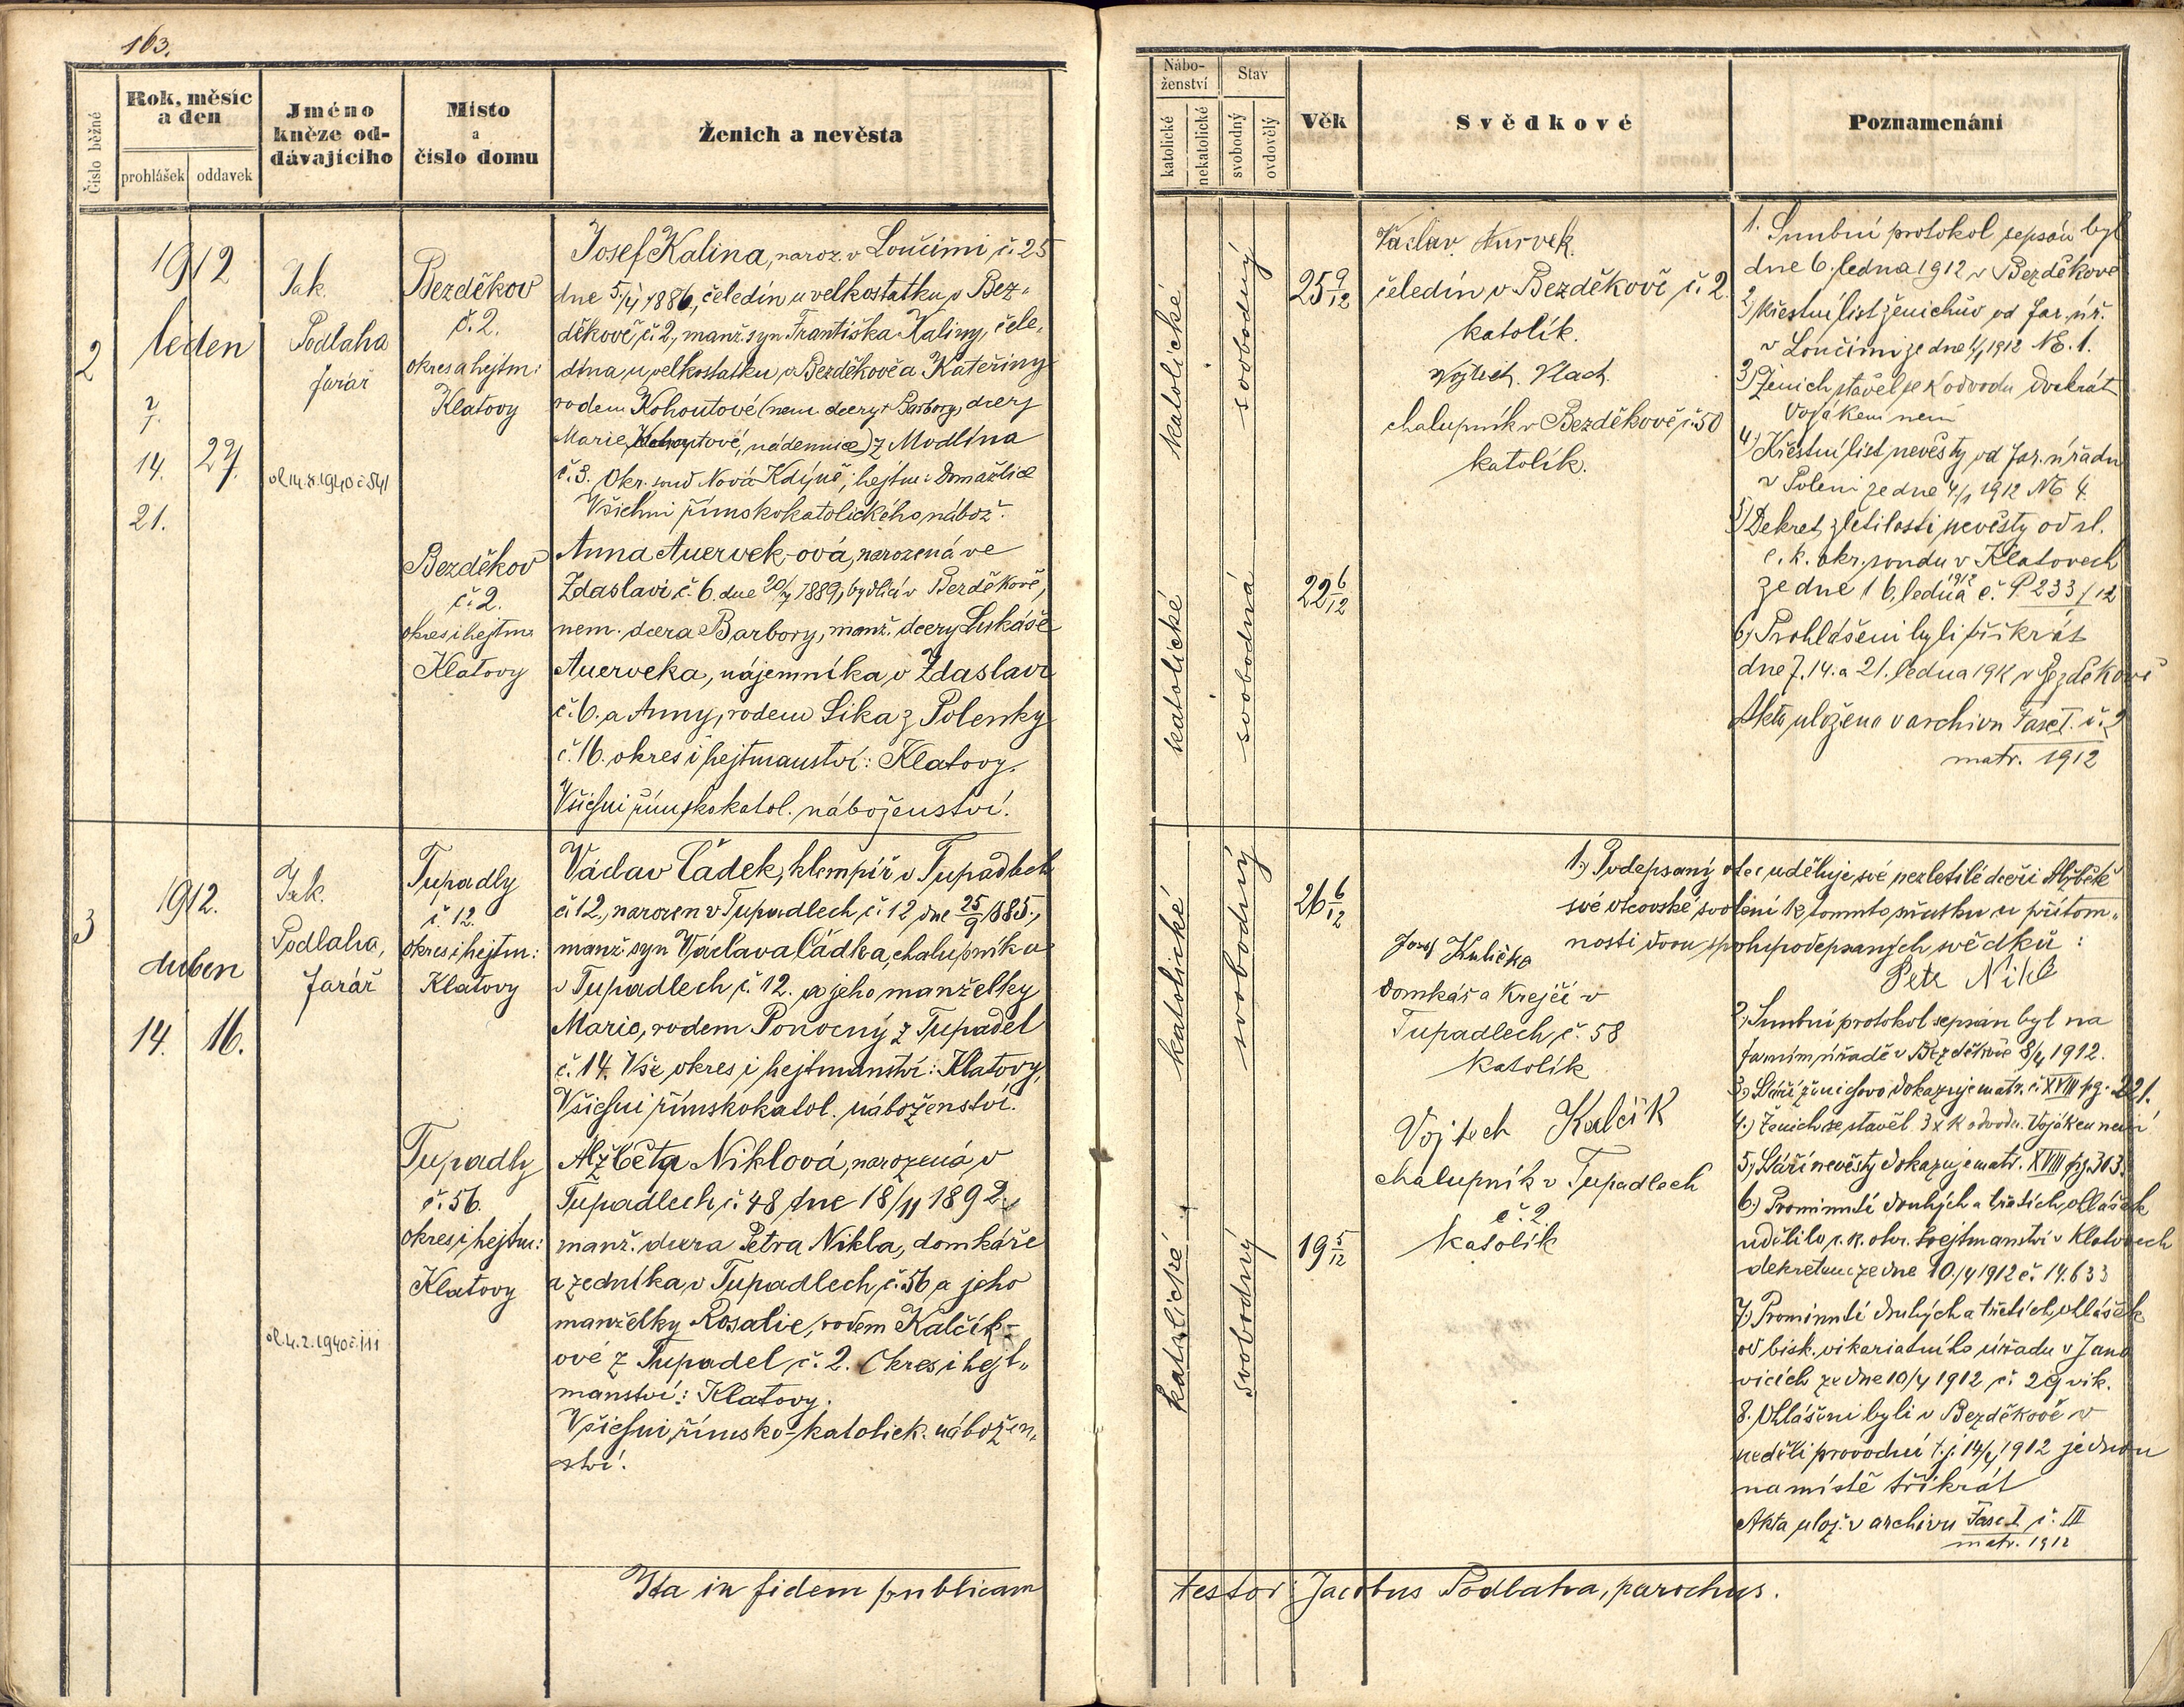 163.
Číslo běžné
Rok, měsíc
a den
prohlášek
oddavek
Jméno
kněze od-
dávajícího
Místo
a
číslo domu
Ženich a nevěsta
2
1912
leden
7.
14.
27.
21.
Jak.
Podlaha
farář
Bezděkov
č. 2.
okres a hejtm:
Klatovy
Josef Kalina, naroz. v Loučimi č. 25
čeledín u velkostatku v Bez-
děkově č. 2, manž. syn Františka Kaliny, čele-
dína u velkostatku v Bezděkově a Kateřiny
rodem Kohoutové (nem. dcery Barbory, dcery
Marie Kohoutové, nádennice) z Modlína
č. 3. Okr. soud Nová Kdýně, hejtm: Domažlice
Všichni římskokatolického nábož.
Bezděkov
č. 2.
okres i hejtm:
Klatovy
Anna Auervek-ová, narozená ve
Zdaslavi č. 6. dne 20/7 1889, bydlící v Bezděkově,
nem. dcera Barbory, manž. dcery Lukáše
Auerveka, nájemníka v Zdaslavi
č. 6. a Anny, rodem Sika z Polenky
č. 16. okres i hejtmanství: Klatovy.
Všichni římskokatol. náboženství.
3
1912.
duben
14.
16.
Jak.
Podlaha,
farář
Tupadly
č. 12.
okres i hejtm:
Klatovy
Václav Čádek, klempíř v Tupadlech
č. 12., narozen v Tupadlech č. 12 dne 25/9 1885,
manž. syn Václava Čádka, chalupníka
v Tupadlech č. 12. a jeho manželky
Marie, rodem Ponocný z Tupadel
č. 14. Vše okres i hejtmanství: Klatovy,
Všichni římskokatol. náboženství.
Tupadly
č. 56.
okres i hejtm:
Klatovy
Alžběta Niklová, narozená v
Tupadlech č. 48 dne 18/11 1892.
manž. dcera Petra Nikla, domkáře
a zedníka v Tupadlech č. 56 a jeho
manželky Rosalie, rodem Kalčík-
ové z Tupadel č. 2. Okres i hejt-
manství: Klatovy.
Všichni římsko-katolick. nábožen-
ství.
Ita in fidem publicam
Nábo-
ženství
Stav
katolické
nekatolické
svobodný
ovdovělý
Věk
Svědkové
Poznamenání
katolické
svobodný
25 9/12
Václav
čeledín v Bezděkově č. 2
katolík.
Vojtěch Vlach
chalupník v Bezděkově č. 50
katolík.
katolické
svobodná
22 6/12
1. Snubní protokol sepsán byl
dne 6. ledna 1912 v Bezděkově
2) Křestní list ženichův od far. úř.
v Loučimi ze dne 1/1 1912 NE. 1.
3) Ženich stavěl se k odvodu dvakrát
Vojákem není
4) Křestní list nevěsty od far. úřadu
v Poleni ze dne 4/1 1912 NE 4.
5) Dekret zletilosti nevěsty od sl.
c. k. okr. soudu v Klatovech
ze dne 16. ledna 1912 č. P 233/12
6) Prohlášeni byli třikrát
dne 7. 14. a 21. ledna 1912 v Bezděkově
Akta uložena v archivu Fasc I. č. 2
matr. 1912
katolické
svobodný
26 6/12
1.) Podepsaný otec uděluje své nezletilé dceři Alžbětě
své otcovské svolení k tomuto sňatku u přítom-
nosti dvou spolupodepsaných svědků:
Petr Nikl
Josef Kulička
domkář a krejčí v
Tupadlech č. 58
katolík
Vojtech Kalčík
chalupník v Tupadlech
č. 2
katolík
katolické
svobodný
19 5/12
2.) Snubní protokol sepsán byl na
farním úřadě v Bezděkově 8/4 1912.
3.) Stáří ženichovo dokazuje matr. č. XVIII pg. 221.
4.) Ženich se stavěl 3x k odvodu. Vojákem není
5.) Stáří nevěsty dokazuje matr. XVIII pg. 303.
6.) Prominutí druhých a třetích ohlášek
udělilo c. k. okr. hejtmanství v Klatovech
dekretem ze dne 10./4 1912 č. 14.633
7.) Prominutí druhých a třetích ohlášek
od bisk. vikariatního úřadu v Jano
vicích ze dne 10/4 1912 č. 29 vik.
8. Ohlášeni byli v Bezděkově v
neděli provodní t. j. 14/4 1912 jednou
na místě třikrát
Akta ulož. v archivu Fasc I č. III
matr. 1912
testor: Jacobus Podlaha, parochus.